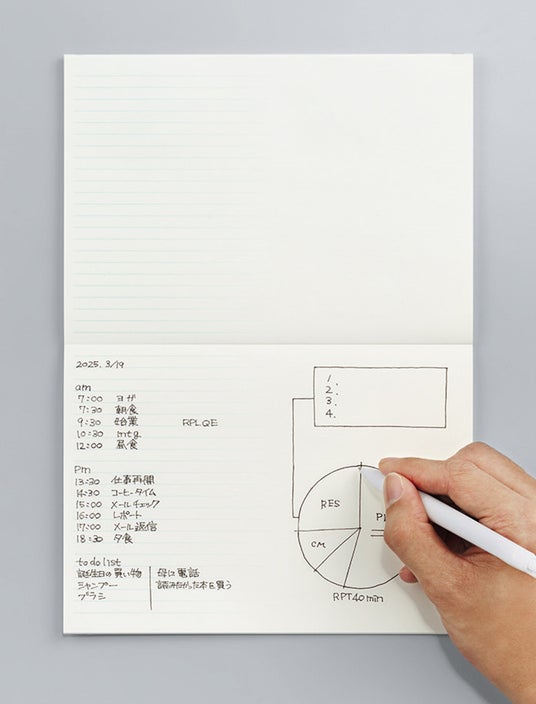 2025. 3/19
am
7:00 ヨガ
7:30 朝食
9:30 始業 RPLQE
10:30 mtg.
12:00 昼食
pm
13:30 仕事再開
14:30 コーヒータイム
15:00 メールチェック
16:00 レポート
17:00 メール返信
18:30 夕食
to do list
誕生日の買い物
シャンプー
ブラシ
母に電話
読みたかった本を買う
1.
2.
3.
4.
RES
CM
RPT40min